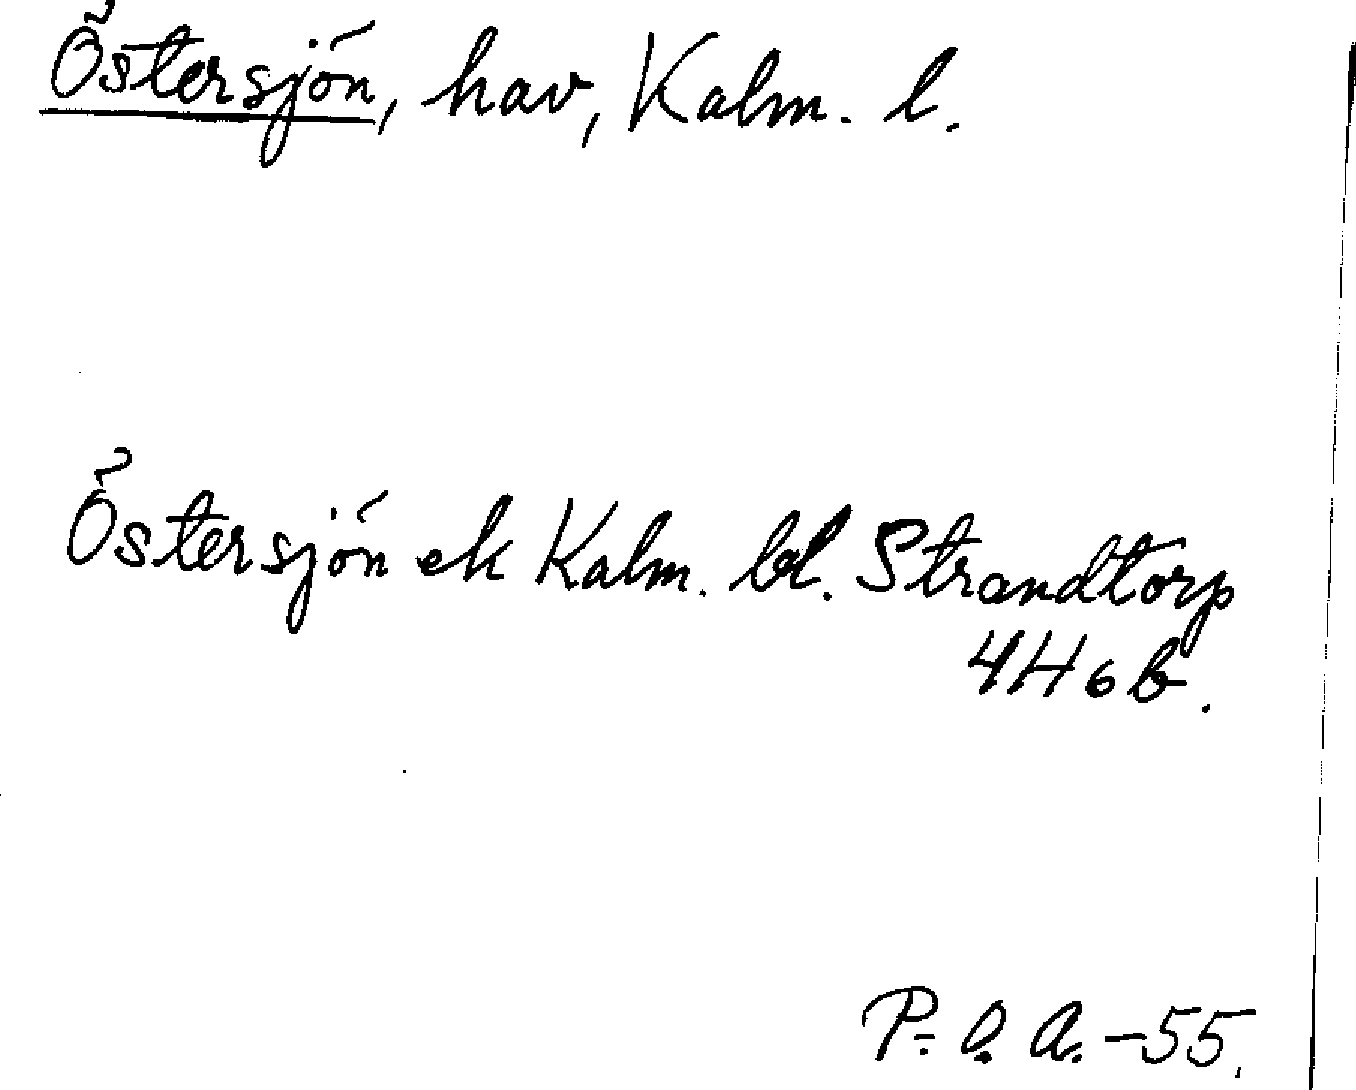 Östersjön, hav, Kalm. l.
Östersjön ek Kalm. bl. Strandtorp
4H6b.
P. O. A. -55.